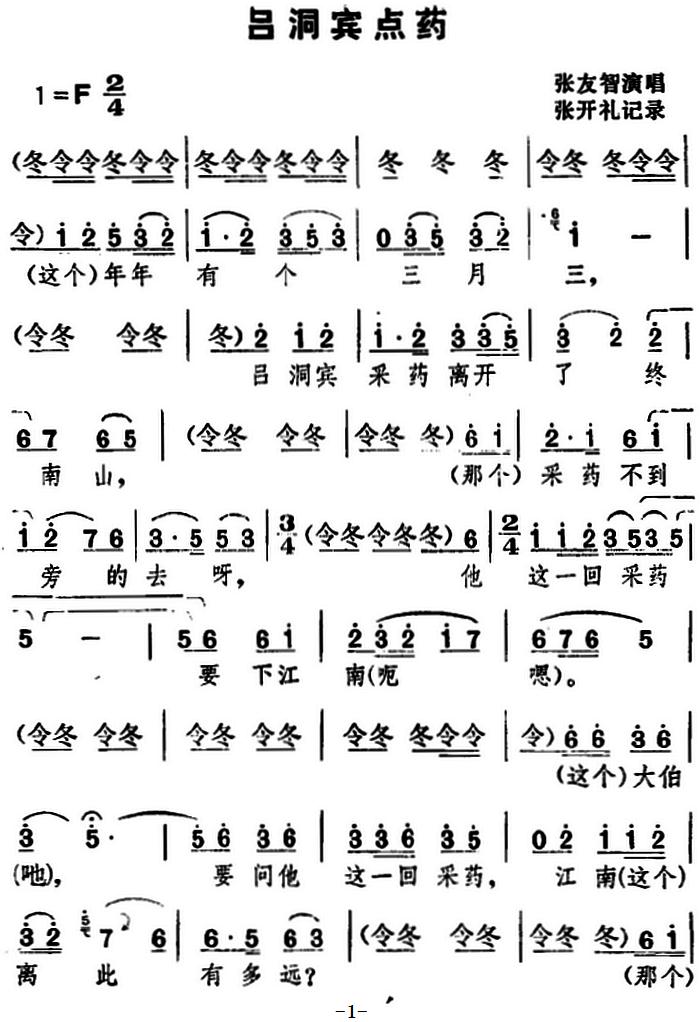 吕洞宾点药
1=F 2/4
张友智演唱
张开礼记录
(冬令令冬令令 | 冬令令冬令令 | 冬 冬 冬 | 令冬 冬令令 |
令) i 2 5 3 2 | i·2 3 5 3 | 0 3 5 3 2 | 6 i — |
(这个)年年 有 个 三 月 三,
(令冬 令冬 | 冬) 2 i 2 | i·2 3 3 5 | 3 2 2 |
吕 洞宾 采 药 离开 了 终
6 7 6 5 | (令冬 令冬 | 令冬 冬) 6 i | 2·i 6 i |
南 山, (那个) 采药 不到
i 2 7 6 | 3·5 5 3 | 3/4 (令冬令冬冬) 6 | 2/4 i i 2 3 5 3 5 |
旁 的 去 呀, 他 这一回 采药
5 — | 5 6 6 i | 2 3 2 i 7 | 6 7 6 5 |
要 下江 南(呃 嗯)。
(令冬 令冬 | 令冬 令冬 | 令冬 冬令令 | 令) 6 6 3 6 |
(这个)大伯
3 5· | 5 6 3 6 | 3 3 6 3 5 | 0 2 i i 2 |
(吔), 要 问他 这一回 采药, 江 南(这个)
3 2 5 7 6 | 6·5 6 3 | (令冬 令冬 | 令冬 冬) 6 i |
离 此 有多 远? (那个)
-1-